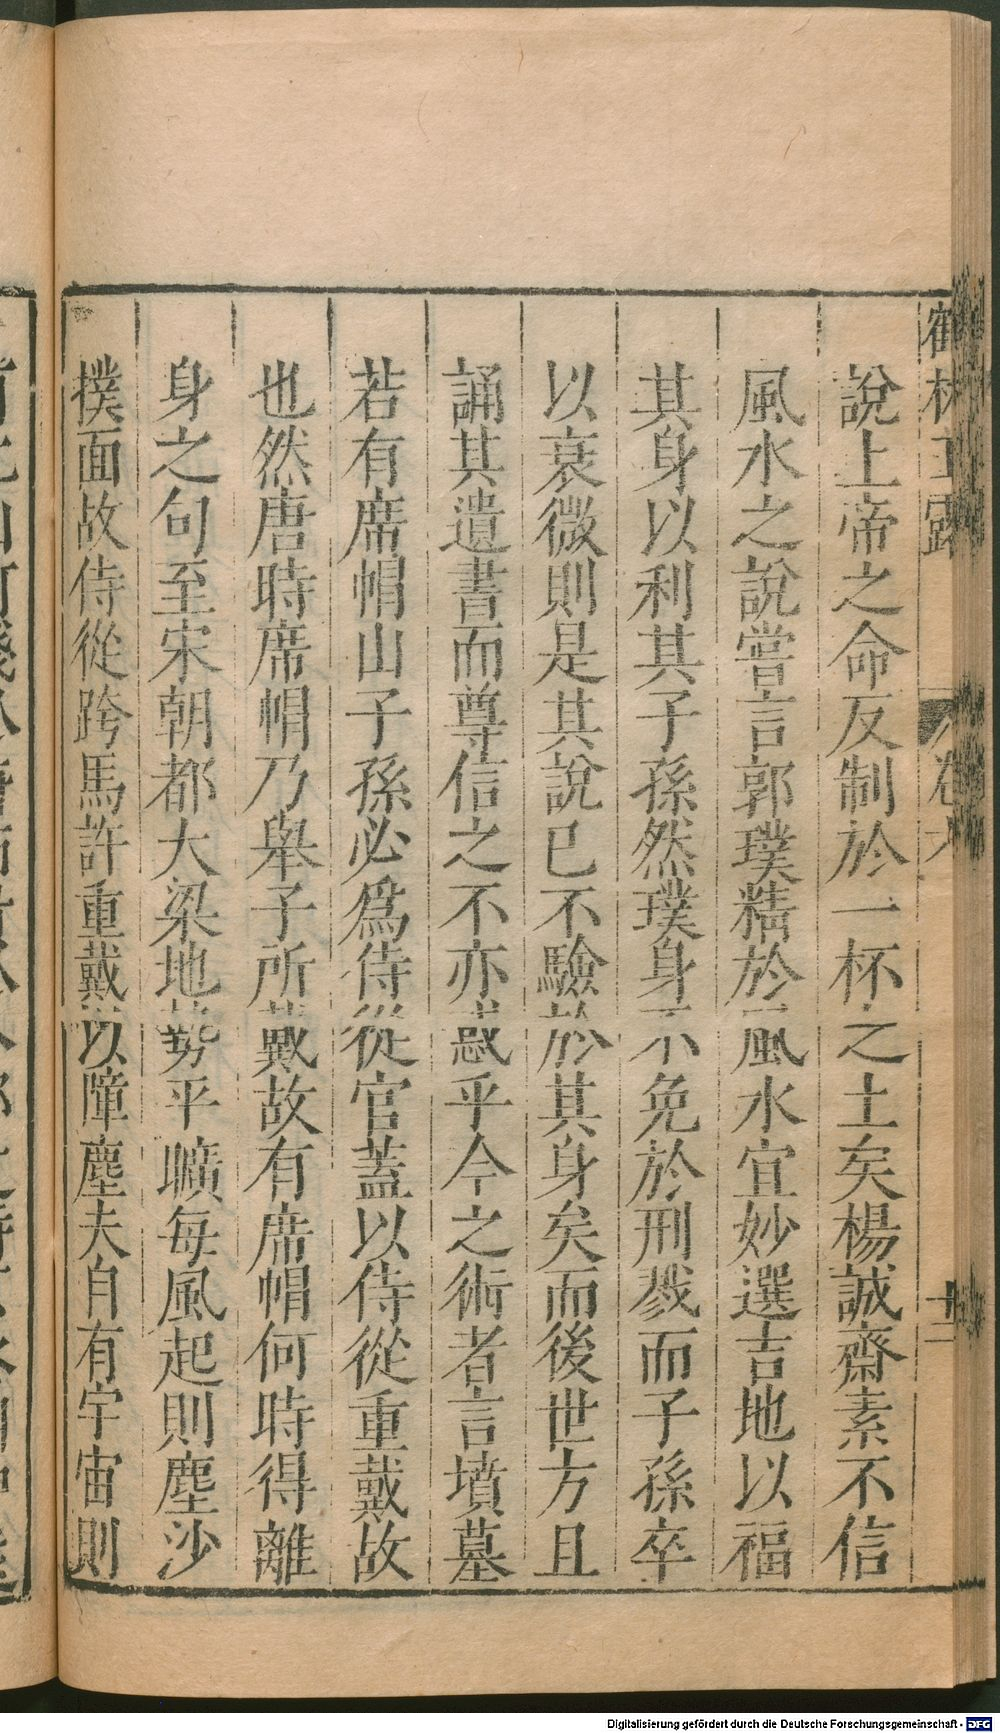 鶴林玉露 卷六 十二
說上帝之命反制於一杯之土矣楊誠齋素不信
風水之說嘗言郭璞精於風水宜妙選吉地以福
其身以利其子孫然璞身不免於刑戮而子孫卒
以衰微則是其說已不驗於其身矣而後世方且
誦其遺書而尊信之不亦惑乎今之術者言墳墓
若有席帽山子孫必爲侍從官蓋以侍從重戴故
也然唐時席帽乃舉子所戴故有席帽何時得離
身之句至宋朝都大梁地勢平曠每風起則塵沙
撲面故侍從跨馬許重戴以障塵夫自有宇宙則
Digitalisierung gefördert durch die Deutsche Forschungsgemeinschaft - DFG